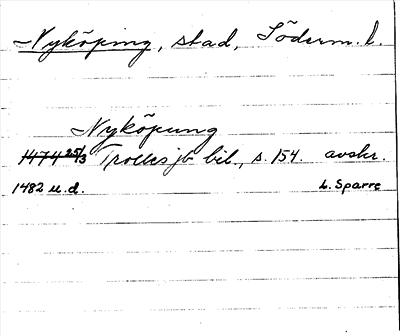 Nyköping, stad, Söderm. l.
Nyköpung
1474 25/3 Trolles jb bil., s. 154. avskr.
1482 u.d. L. Sparre